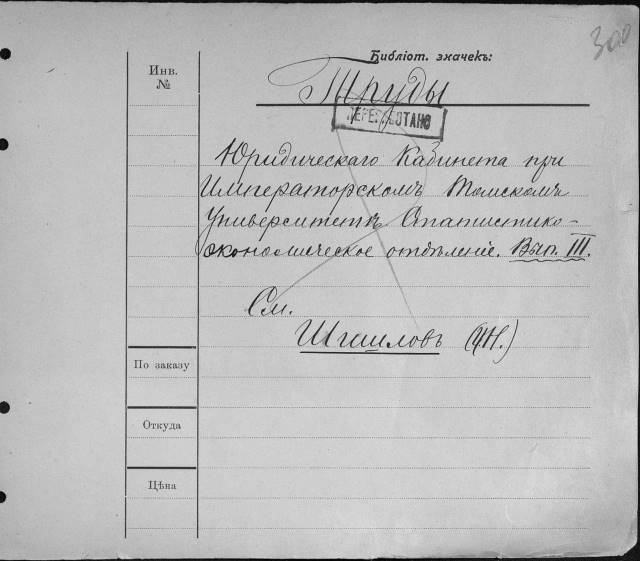 300
Библіот. значекъ:
Инв.
№
Труды
ПЕРЕРАБОТАНО
Юридическаго Кабинета при
Императорскомъ Томскомъ
Университетѣ Статистико-
экономическое отдѣленіе. Вып. III.
См.
(И.)
По заказу
Откуда
Цѣна